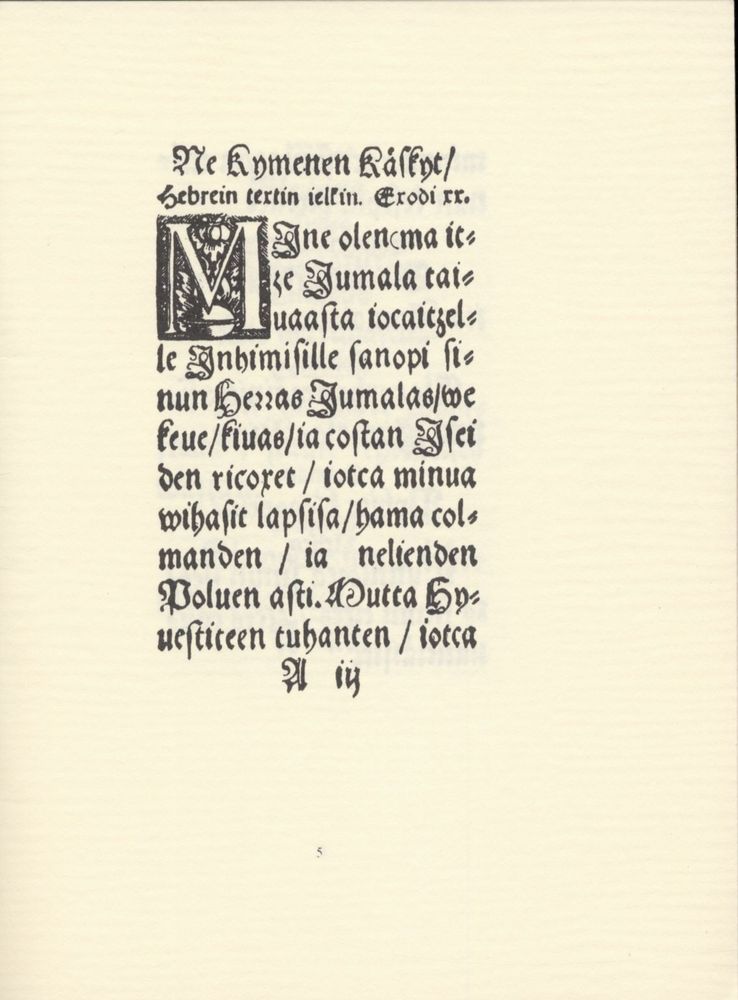 Ne Kymenen Käſkyt/
Hebrein textin ielkin. Exodi xx.
MJne olen ma it⸗
ze Jumala tai⸗
uaaſta iocaitzel⸗
le Jnhimiſille ſanopi ſi⸗
nun Herras Jumalas/we
keue/kiuas/ia coſtan Jſei
den ricoxet / iotca minua
wihaſit lapſiſa/hama col⸗
manden / ia nelienden
Poluen aſti. Mutta Hy⸗
ueſtiteen tuhanten / iotca
A iij
5